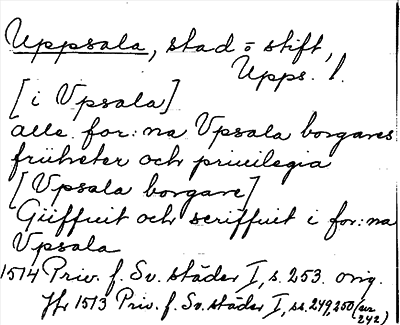 Uppsala, stad o stift,
Upps. l.
[i Vpsala]
alle for:na Vpsala borgares
früheter och priuilegia
[Vpsala borgare]
Güffuit och scriffuit i for:na
Vpsala
1514 Priv. f. Sv. städer I, s. 253. orig.
Jfr 1513 Priv. f. Sv. städer I, ss. 249, 250 (
242)